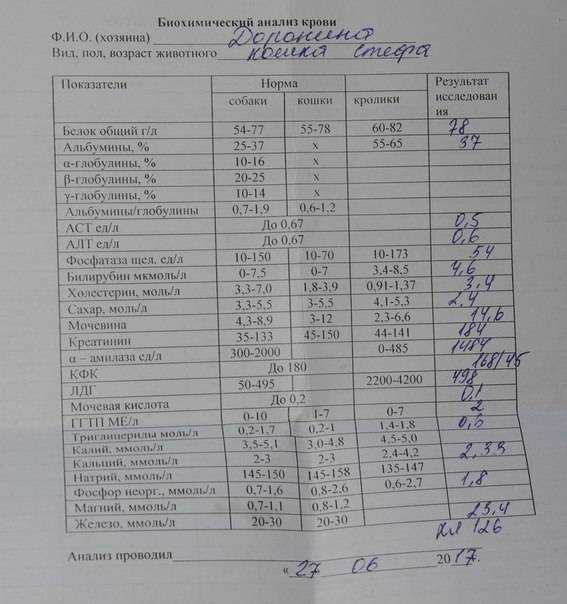 Биохимический анализ крови
Ф.И.О. (хозяина) Доронина
Вид, пол, возраст животного кошка Стефа
Показатели Норма Результат исследования
собаки кошки кролики
Белок общий г/л 54-77 55-78 60-82 78
Альбумины, % 25-37 х 55-65 37
α-глобулины, % 10-16 х
β-глобулины, % 20-25 х
γ-глобулины, % 10-14 х
Альбумины/глобулины 0,7-1,9 0,6-1,2
АСТ ед/л До 0,67 0,5
АЛТ ед/л До 0,67 0,6
Фосфатаза щел. ед/л 10-150 10-70 10-173 54
Билирубин мкмоль/л 0-7,5 0-7 3,4-8,5 4,6
Холестерин, моль/л 3,3-7,0 1,8-3,9 0,91-1,37 3,4
Сахар, моль/л 3,3-5,5 3-5,5 4,1-5,3 2,4
Мочевина 4,3-8,9 3-12 2,3-6,6 14,6
Креатинин 35-133 45-150 44-141 184
α – амилаза ед/л 300-2000 0-485 1484
КФК До 180 168/45
ЛДГ 50-495 2200-4200 498
Мочевая кислота До 0,2 0,1
ГГТП МЕ/л 0-10 1-7 0-7 2
Триглицериды моль/л 0,2-1,7 0,2-1 1,4-1,8 0,6
Калий, ммоль/л 3,5-5,1 3,0-4,8 4,5-5,0
Кальций, ммоль/л 2-3 2-3 2,4-4,2 2,33
Натрий, ммоль/л 145-150 145-158 135-147
Фосфор неорг., ммоль/л 0,7-1,6 0,8-2,6 0,6-2,7 1,8
Магний, ммоль/л 0,7-1,1 0,8-1,2
Железо, ммоль/л 20-30 20-30 23,4
хл 126
Анализ проводил
« 27 06 2017.